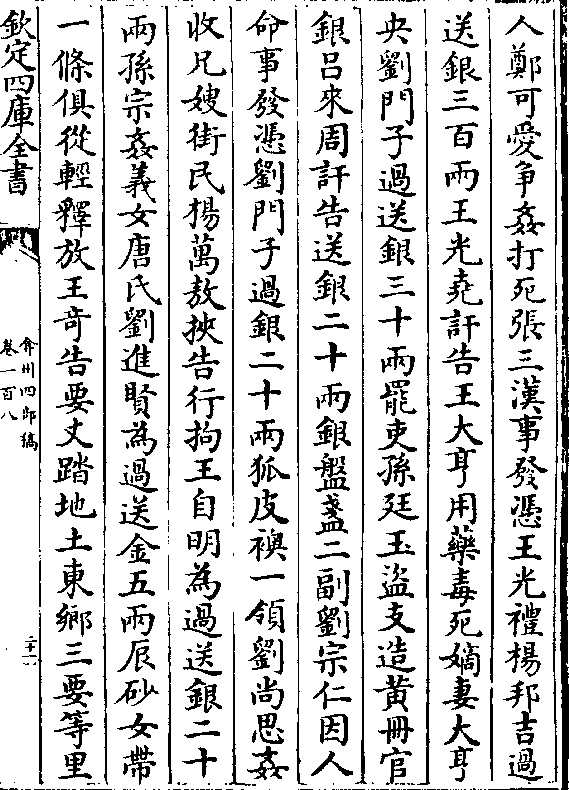 人鄭可愛争姦打死張三漢事發憑王光禮楊邦吉過
送銀三百兩王光堯訐告王大亨用藥毒死嫡妻大亨
央劉門子過送銀三十兩罷吏孫廷玉盜支造黃冊官
銀吕來周訐告送銀二十兩銀盤盞二副劉宗仁因人
命事發憑劉門子過銀二十兩狐皮襖一領劉尚思姦
收兄嫂街民楊萬敖挾告行拘王自明為過送銀二十
兩孫宗姦義女唐氏劉進賢為過送金五兩辰砂女帶
一條俱從輕釋放王竒告要丈踏地土東鄉三要等里
欽定四庫全書
弇州四部稿
卷一百八
二十一